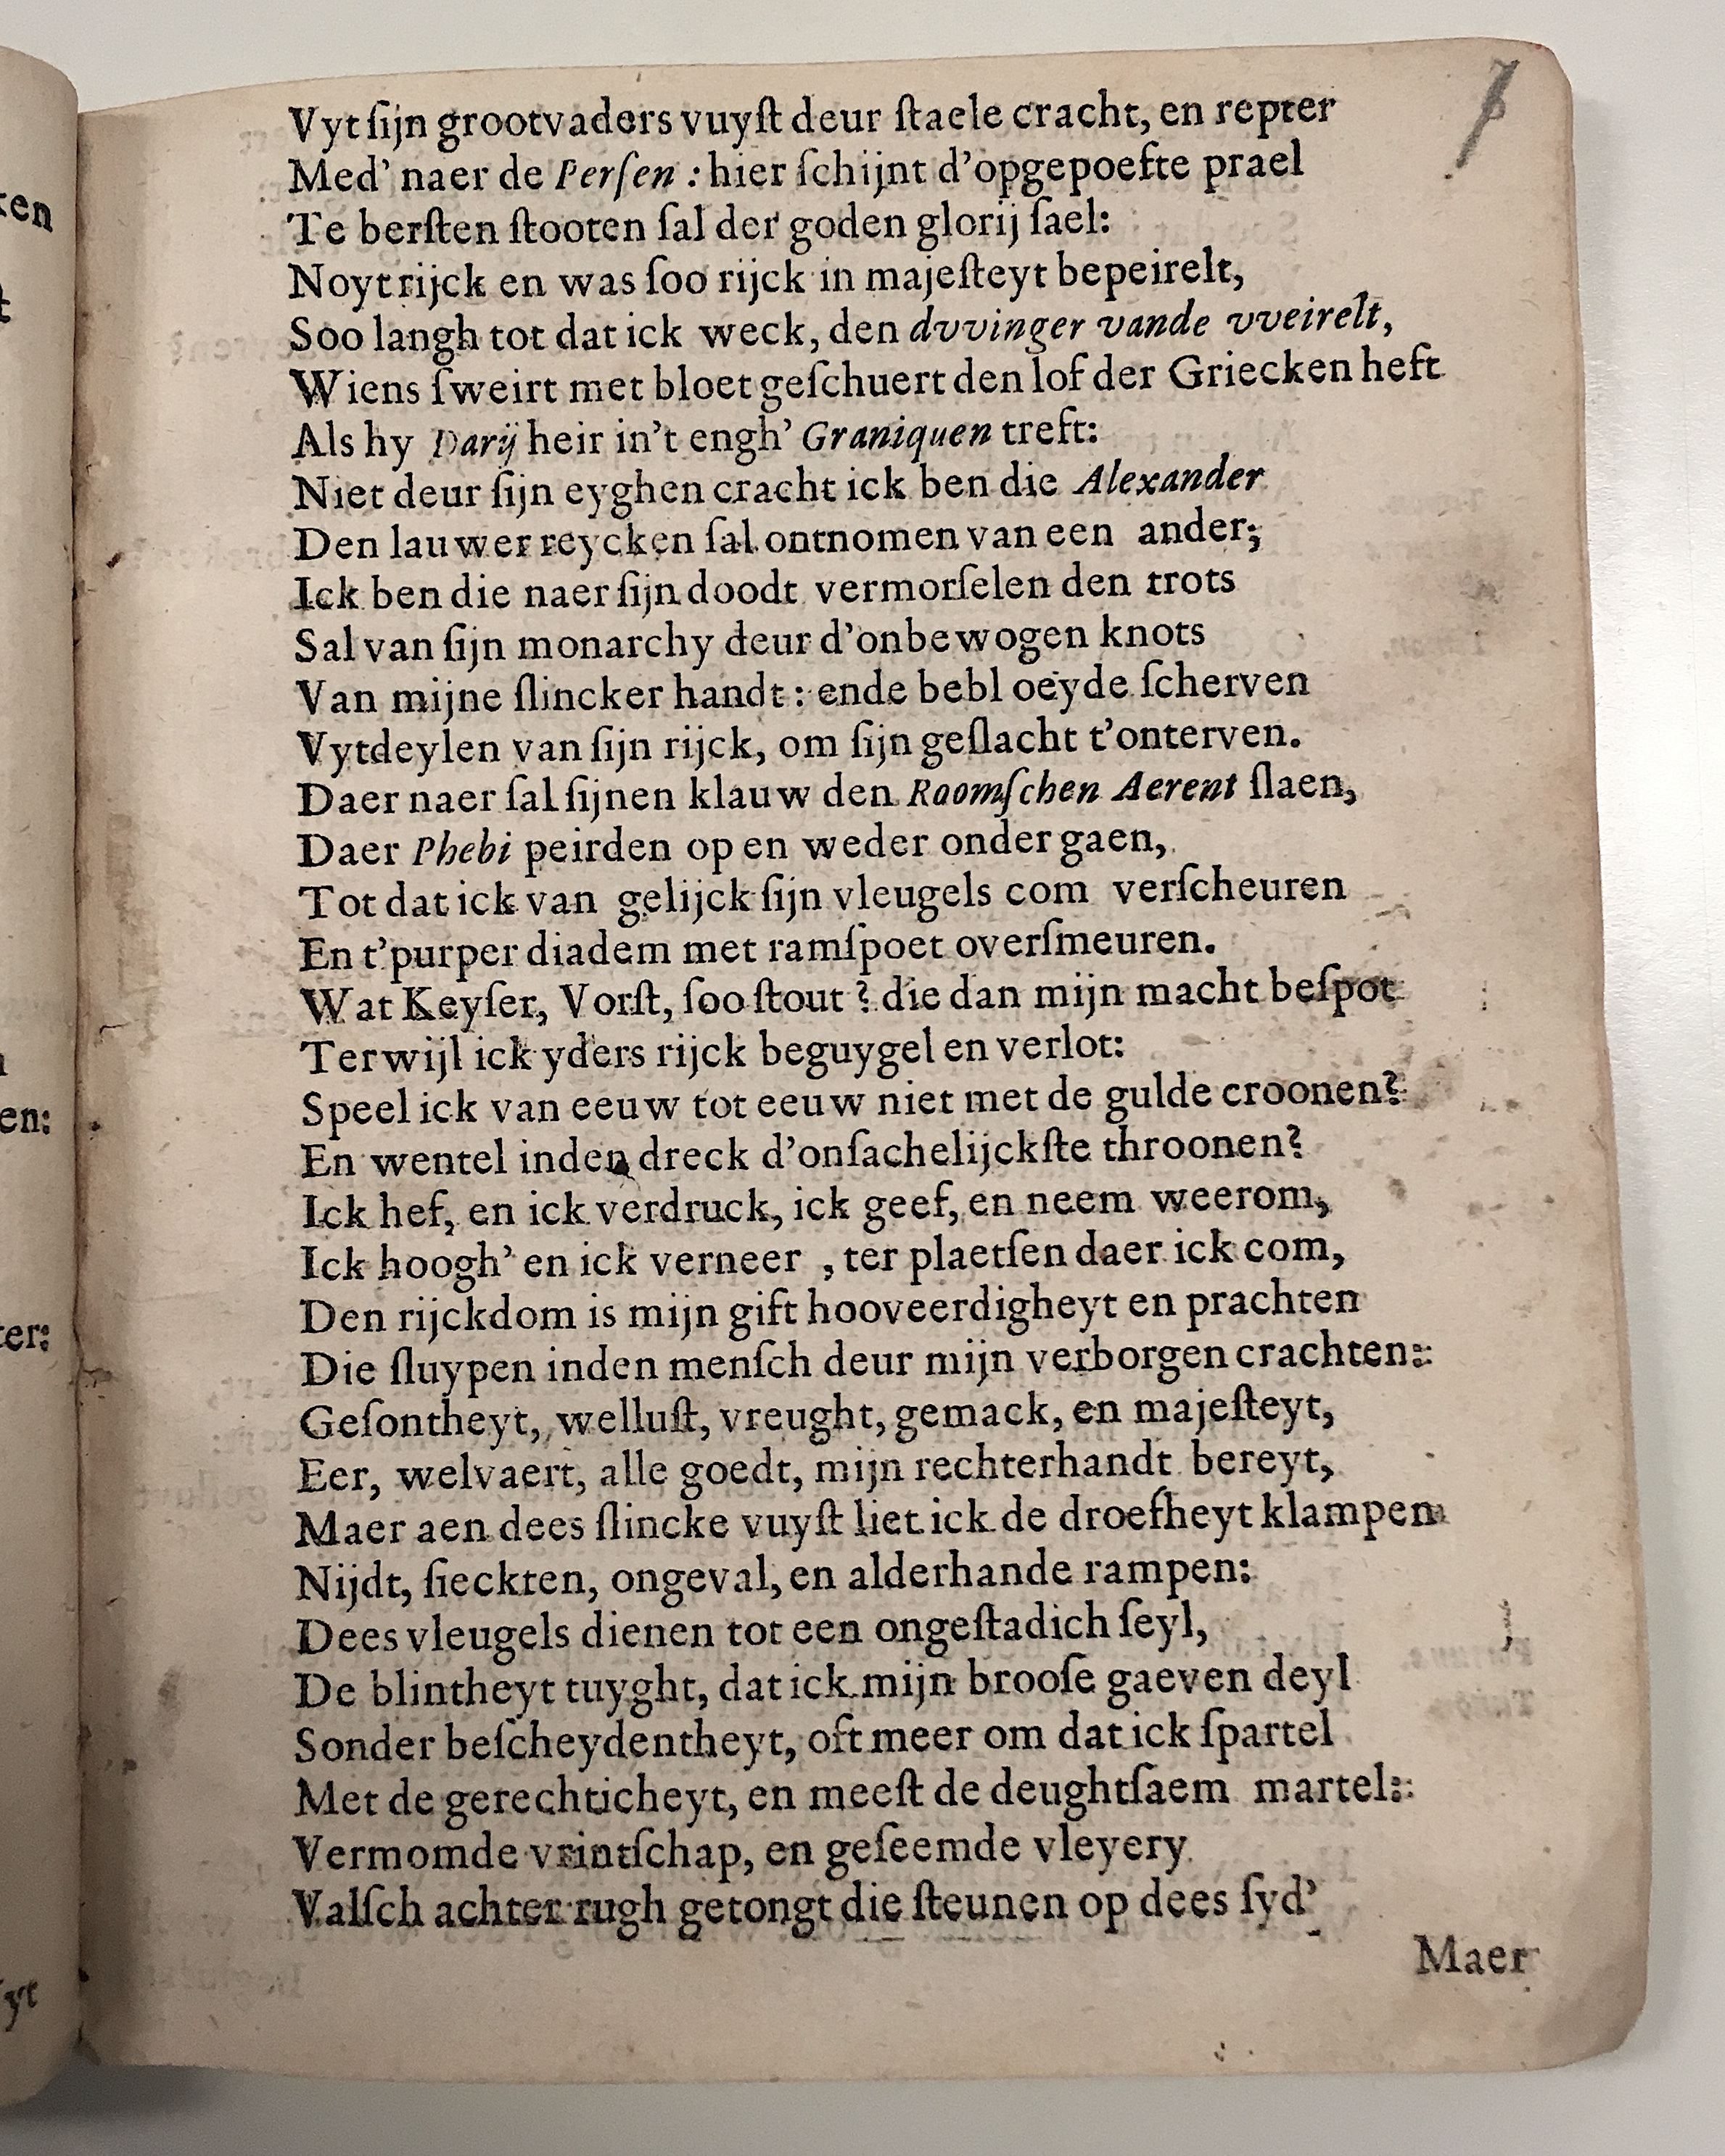 7
Vyt ſijn grootvaders vuyſt deur ſtaele cracht, en repter
Med' naer de Perſen : hier ſchijnt d'opgepoefte prael
Te berſten ſtooten ſal der goden glorij ſael:
Noyt rijck en was ſoo rijck in majeſteyt bepeirelt,
Soo langh tot dat ick weck, den dvvinger vande vveirelt,
Wiens ſweirt met bloet geſchuert den lof der Griecken heft
Als hy Darij heir in't engh' Graniquen treft:
Niet deur ſijn eyghen cracht ick ben die Alexander
Den lauwer reycken ſal ontnomen van een ander;
Ick ben die naer ſijn doodt vermorſelen den trots
Sal van ſijn monarchy deur d'onbewogen knots
Van mijne ſlincker handt : ende bebloeyde ſcherven
Vytdeylen van ſijn rijck, om ſijn geſlacht t'onterven.
Daer naer ſal ſijnen klauw den Roomſchen Aerent ſlaen,
Daer Phebi peirden op en weder onder gaen,
Tot dat ick van gelijck ſijn vleugels com verſcheuren
En t'purper diadem met ramſpoet overſmeuren.
Wat Keyſer, Vorſt, ſoo ſtout ? die dan mijn macht beſpot
Terwijl ick yders rijck beguygel en verlot:
Speel ick van eeuw tot eeuw niet met de gulde croonen?
En wentel inden dreck d'onſachelijckſte throonen?
Ick hef, en ick verdruck, ick geef, en neem weerom,
Ick hoogh' en ick verneer , ter plaetſen daer ick com,
Den rijckdom is mijn gift hooveerdigheyt en prachten
Die ſluypen inden menſch deur mijn verborgen crachten:
Geſontheyt, welluſt, vreught, gemack, en majeſteyt,
Eer, welvaert, alle goedt, mijn rechterhandt bereyt,
Maer aen dees ſlincke vuyſt liet ick de droefheyt klampen
Nijdt, ſieckten, ongeval, en alderhande rampen:
Dees vleugels dienen tot een ongeſtadich ſeyl,
De blintheyt tuyght, dat ick mijn brooſe gaeven deyl
Sonder beſcheydentheyt, oft meer om dat ick ſpartel
Met de gerechticheyt, en meeſt de deughtſaem martel:
Vermomde vrintſchap, en geſeemde vleyery
Valſch achter rugh getongt die ſteunen op dees ſyd'
Maer